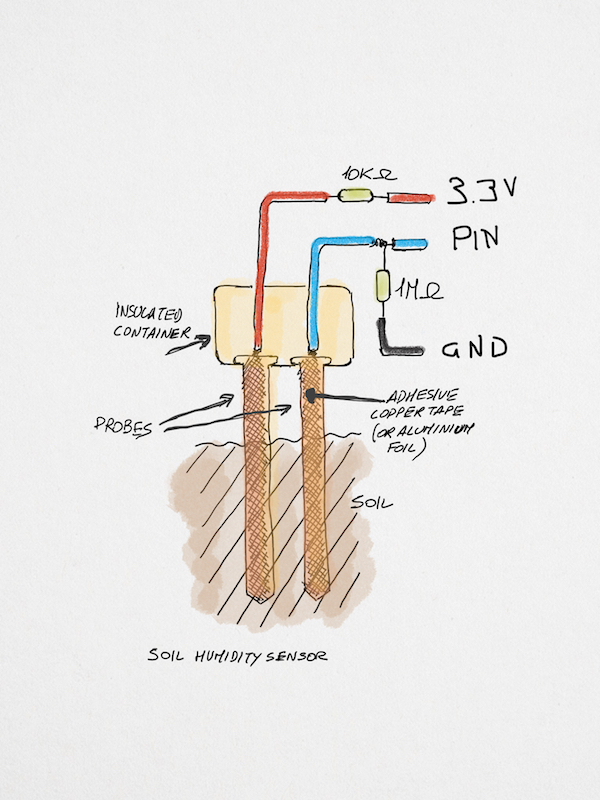 10KΩ
3.3V
PIN
1MΩ
GND
INSULATED
CONTAINER
PROBES
ADHESIVE
COPPER TAPE
(OR ALUMINIUM
FOIL)
SOIL
SOIL HUMIDITY SENSOR